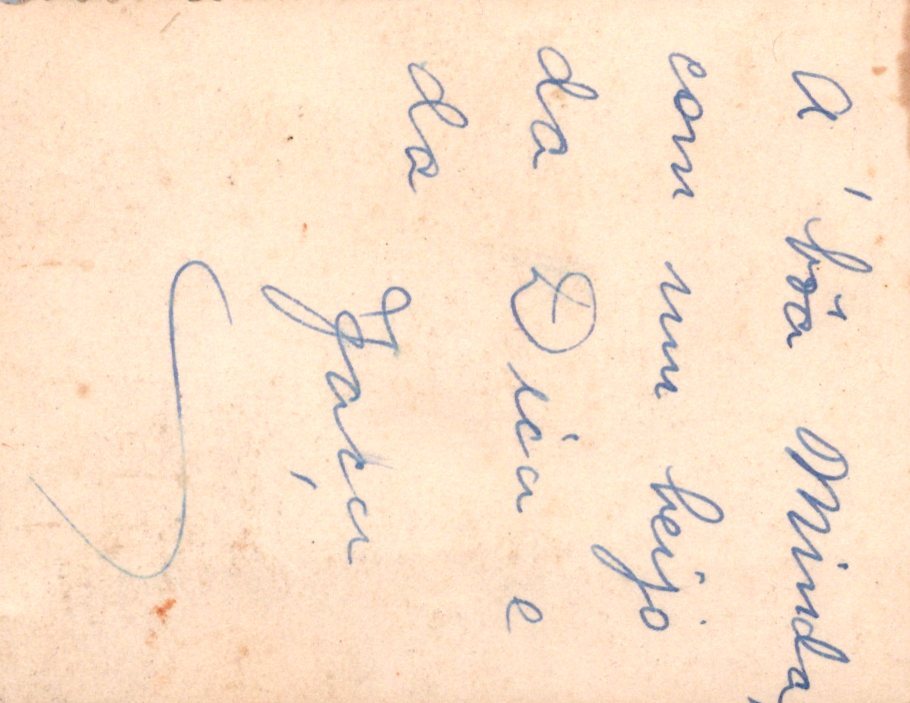 A' bôa Minda,
com um beijo
da Dica e
da